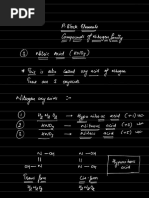 P-Block Elements
Compounds of Nitrogen family
① Nitric Acid (HNO₃)
* This is also called oxy acid of nitrogen
There are 3 oxyacids
Nitrogen oxyacids :-
① H₂N₂O₂ → Hypo nitrous acid (+1)
② HNO₂ → Nitrous acid (+3)
③ HNO₃ → Nitric acid (+5)
N-OH
N-OH
Trans form
H₂N₂O₂
N-OH
N-OH
Cis form
H₂N₂O₂
Hyponitrous
acid